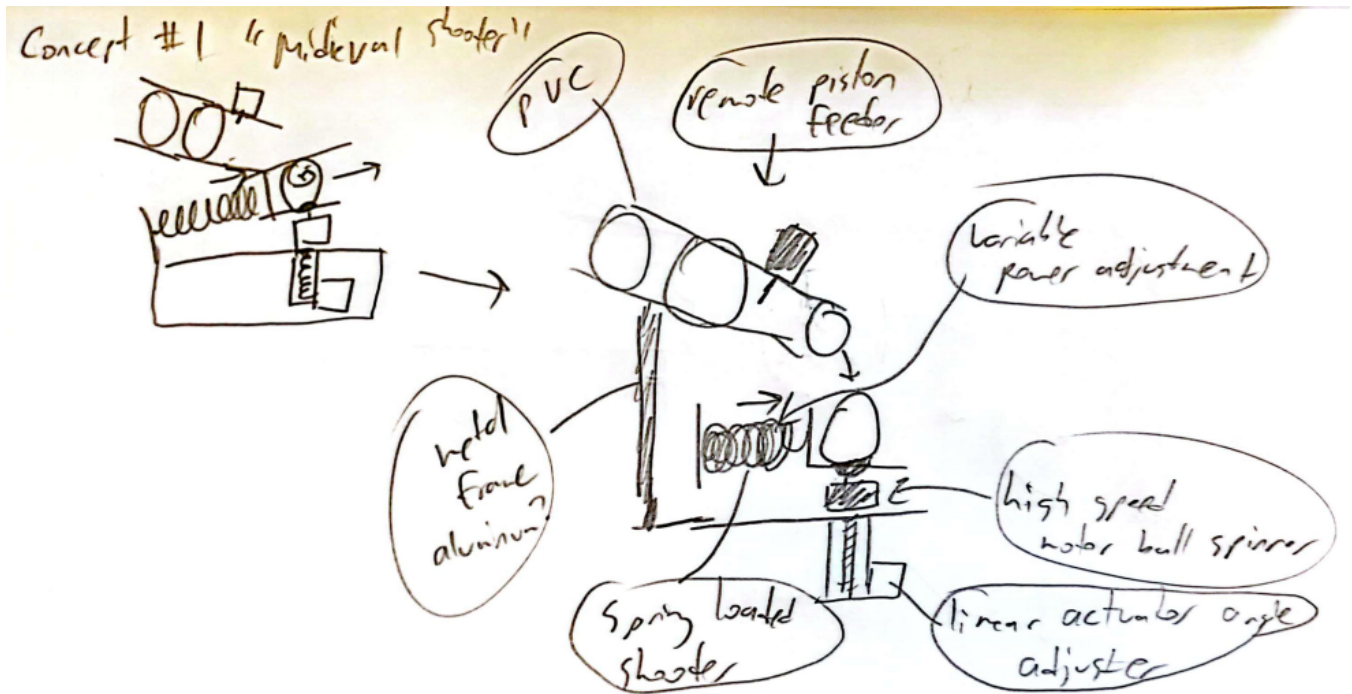 Concept #1 "Midieval shooter"
PVC
remote piston
feeder
variable
power adjustment
metal
frame
aluminum?
high speed
motor ball spinner
spring loaded
shooter
linear actuator angle
adjuster